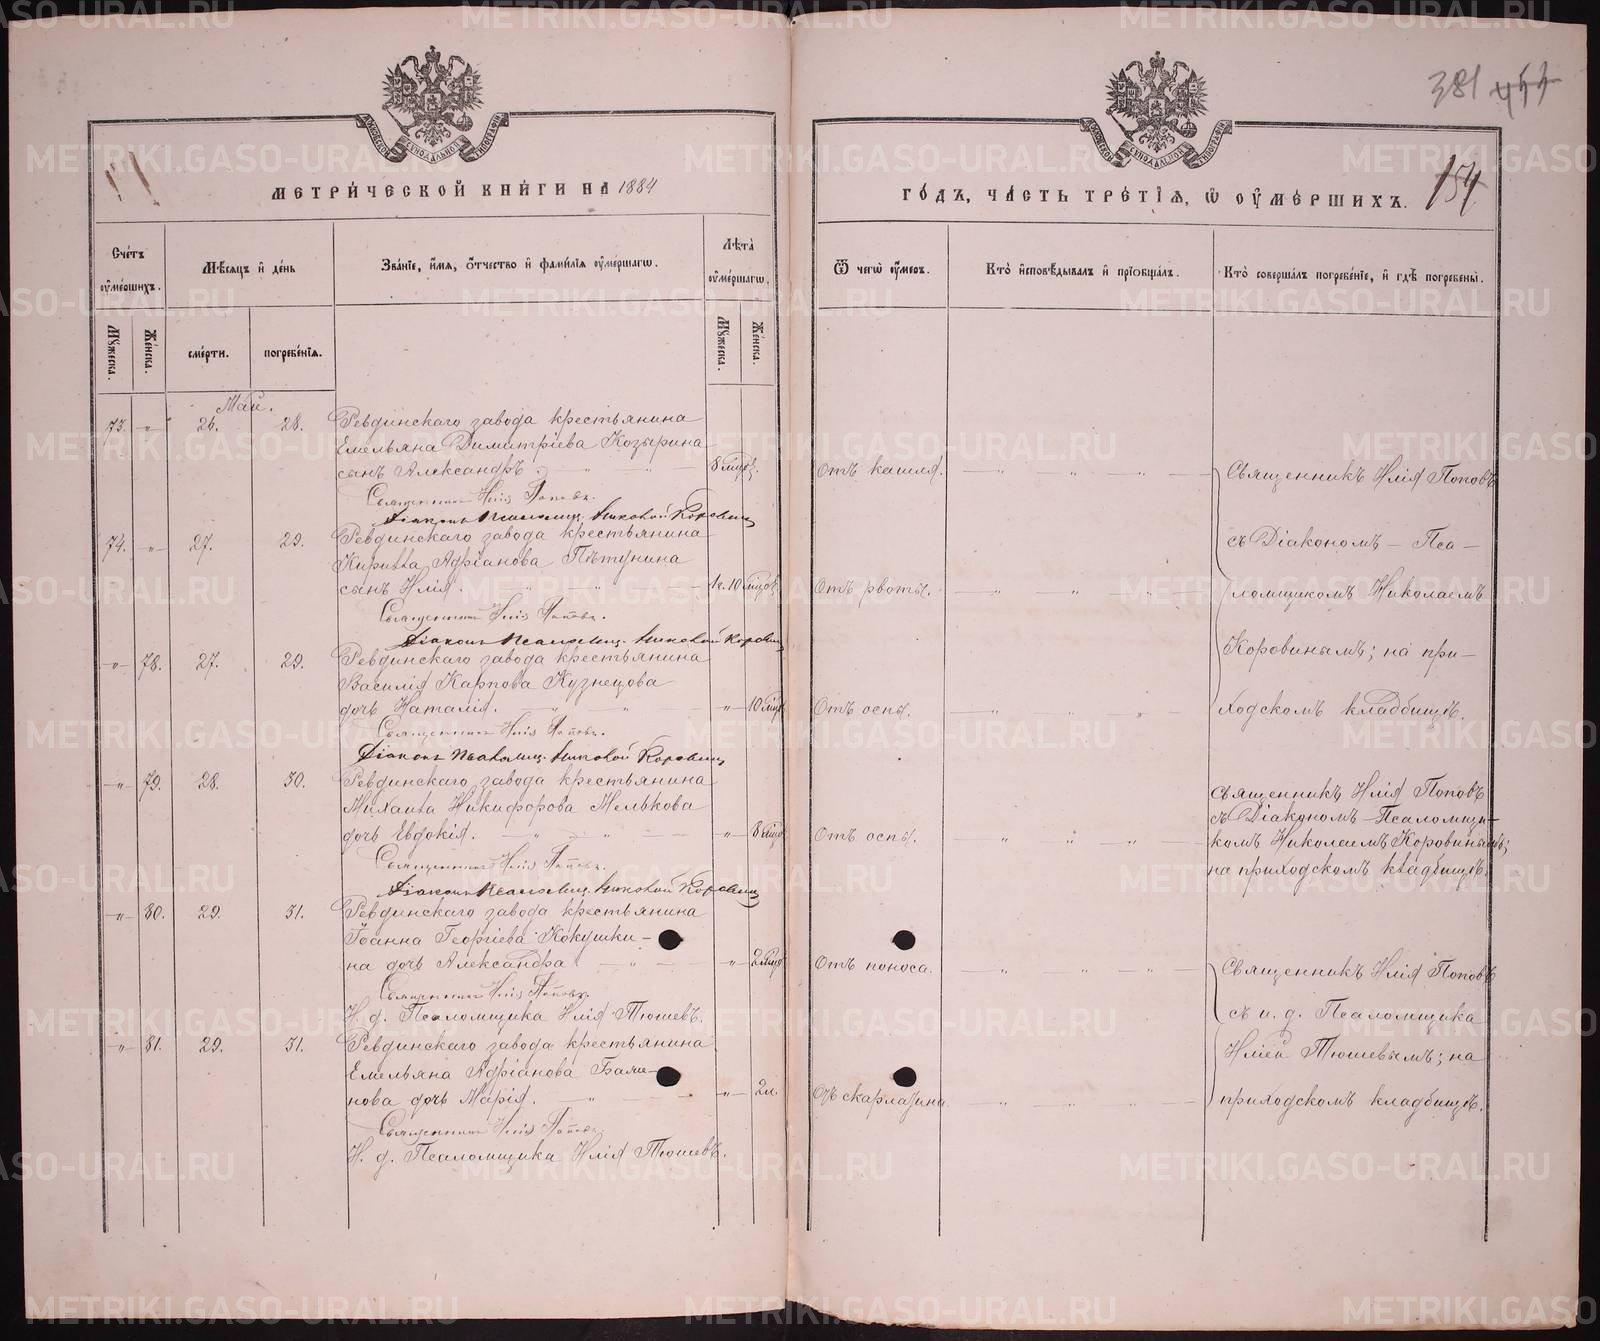 381
154
МЕТРИЧЕСКОЙ КНИГИ НА 1884
ГОДЪ, ЧАСТЬ ТРЕТІЯ, Ѿ ОУМЕРШИХЪ.
Счетъ оумершихъ.
Мѣсяцъ и день
Званіе, имя, отчество и фамилія оумершагω.
Лѣта оумершагω.
Ѿ чегω оумеръ.
Кто исповѣдывалъ и пріобщалъ.
Кто совершалъ погребеніе, и гдѣ погребены.
Мужеска.
Женска.
смерти.
погребенія.
Мужеска.
Женска.
Май.
73. „ 26. 28. Ревдинскаго завода крестьянина
Емельяна Димитріева Козырина
сынъ Александръ. 8 мцов. Отъ кашля.
Священникъ Илія Поповъ.
Діаконъ Псаломщ. Николай Коровинъ
74. „ 27. 29. Ревдинскаго завода крестьянина
Кирилла Адріанова Пѣтунина
сынъ Илія. 1 г. 10 мцовъ Отъ рвоты.
Священникъ Илія Поповъ.
Діаконъ Псаломщ. Николай Коровинъ
„ 78. 27. 29. Ревдинскаго завода крестьянина
Василія Карпова Кузнецова
дочь Наталія. „ 10 мцов Отъ оспы.
Священникъ Илія Поповъ.
Діаконъ Псаломщ. Николай Коровинъ
Священникъ Илія Поповъ
съ Діакономъ – Пса–
ломщикомъ Николаемъ
Коровинымъ; на при–
ходскомъ кладбищѣ.
„ 79. 28. 30. Ревдинскаго завода крестьянина
Михаила Никифорова Мелькова
дочь Евдокія. „ 8 мцов Отъ оспы.
Священникъ Илія Поповъ.
Діаконъ Псаломщ. Николай Коровинъ
Священникъ Илія Поповъ
съ Діакономъ–Псаломщи–
комъ Николаемъ Коровинымъ;
на приходскомъ кладбищѣ.
„ 80. 29. 31. Ревдинскаго завода крестьянина
Іоанна Георгіева Кокушки–
на дочь Александра „ 2 мцов Отъ поноса.
Священникъ Илія Поповъ.
И. д. Псаломщика Илія Тюшевъ.
„ 81. 29. 31. Ревдинскаго завода крестьянина
Емельяна Адріанова
нова дочь Марія. „ 2 л. Отъ скарлатина
Священникъ Илія Поповъ.
И. д. Псаломщика Илія Тюшевъ.
Священникъ Илія Поповъ
съ и. д. Псаломщика
Иліей Тюшевымъ; на
приходскомъ кладбищѣ.
METRIKI.GASO-URAL.RU